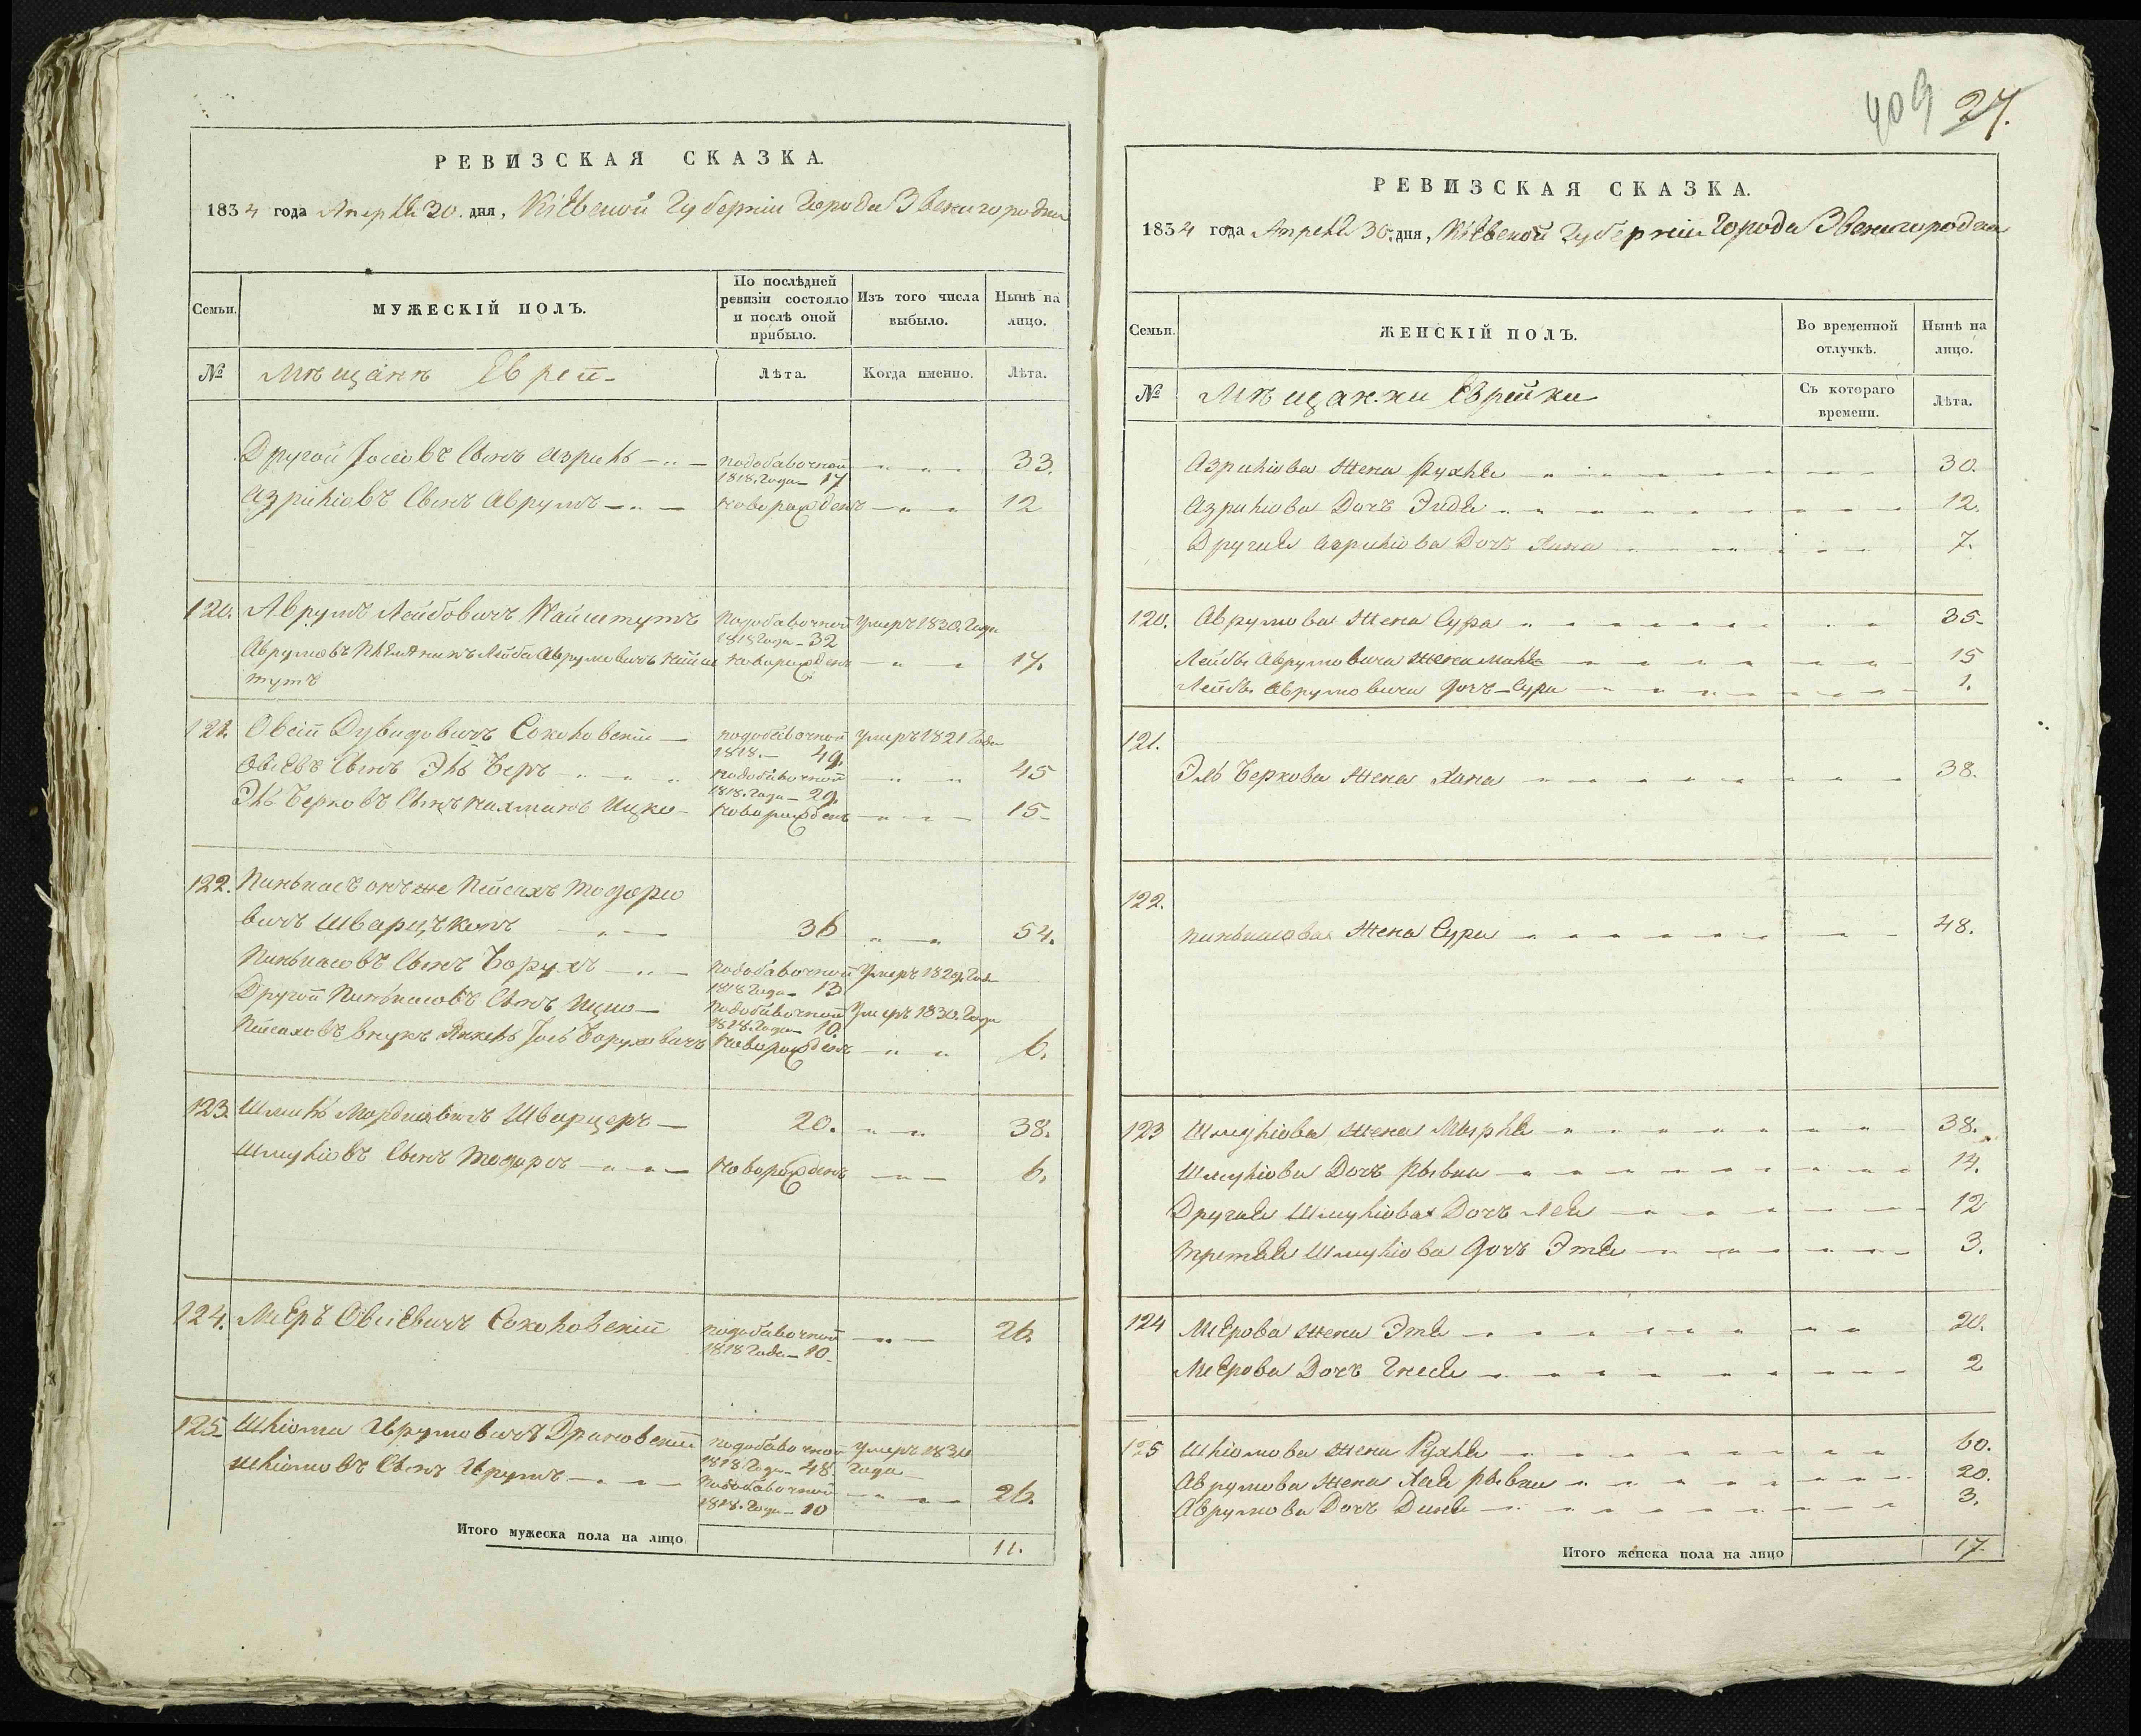 РЕВИЗСКАЯ СКАЗКА.
1834 года Апреля 30. дня, Кіевской Губерніи Города Звенигородки
Семьи.
МУЖЕСКІЙ ПОЛЪ.
По послѣдней ревизіи состояло и послѣ оной прибыло.
Изъ того числа выбыло.
Нынѣ на лицо.
№
Мѣщанъ Еврей
Лѣта.
Когда именно.
Лѣта.
Другой Іосіовъ Сынъ Азриль подобавочной 1818. Года 17 33.
Азриліовъ Сынъ Аврумъ новорожденъ 12
120. Аврумъ Лейбовичъ Найштутъ подобавочной 1818 Года 32 Умеръ 1830. Года
Аврумовъ Племяникъ Лейба Аврумовичъ Найш новорожденъ 17.
тутъ
121. Овсій Дувидовичъ Соколовскій подобавочной 1818. 49. Умеръ 1821 Года
Овсіевъ Сынъ Эль Беръ подобавочной 1818. Года 29. 45
Эль Берковъ Сынъ Нахманъ Ицко новорожденъ 15
122. Пинькасъ онъ же Пейсахъ Тодоро
вичъ Шварцъконъ 36 54.
Пинькасовъ Сынъ Борухъ подобавочной 1818 Года 13 Умеръ 1829. Года
Другой Пинькасовъ Сынъ Ицко подобавочной 1818. Года 10. Умеръ 1830. Года
Пейсаховъ Внукъ Янкель Іось Боруховичъ новорожденъ 6.
123. Шмиль Мордковичъ Шварцеръ 20. 38.
Шмуліовъ Сынъ Тодоръ новорожденъ 6.
124. Меєръ Овсіевичъ Соколовскій подобавочной 1818 Года 10. 26.
125. Шліома Аврумовичъ Драновскій подобавочной 1818 Года 48. Умеръ 1830 Года
Шліомовъ Сынъ Аврумъ подобавочной 1818. Года 10 26.
Итого мужеска пола на лицо 11.
409 27.
РЕВИЗСКАЯ СКАЗКА.
1834 года Апреля 30. дня, Кіевской Губерніи Города Звенигородки
Семьи.
ЖЕНСКІЙ ПОЛЪ.
Во временной отлучкѣ.
Нынѣ на лицо.
№
Мѣщанки Еврейки
Съ котораго времени.
Лѣта.
Азриліова Жена Рухля 30.
Азриліова Дочъ Эидя 12.
Другая Азриліова Дочъ Хана 7.
120. Аврумова Жена Сура 35
Лейбы Аврумовича Жена Маля 15
Лейбы Аврумовича Дочъ Сура 1.
121.
Эль Беркова Жена Хана 38.
122.
Пинькасова Жена Сура 48.
123 Шмуліова Жена Мырля 38.
Шмуліова Дочъ Рывка 14.
Другая Шмуліова Дочъ Лея 12
Третяя Шмуліова Дочъ Этя 3.
124 Меєрова Жена Этя 20.
Меєрова Дочъ Гнеся 2
125 Шліомова Жена Рухля 60.
Аврумова Жена Хая Рывка 20.
Аврумова Дочъ Диня 3.
Итого женска пола на лицо 17.